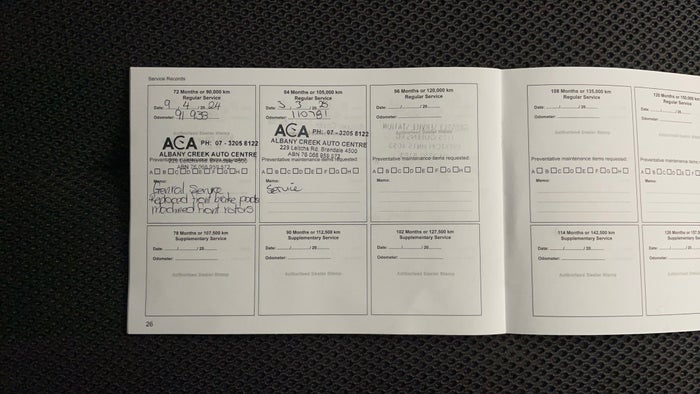 Service Records
72 Months or 90,000 km
Regular Service
Date: 9 / 4 / 20 24
Odometer: 91 933
Authorised Dealer Stamp
ACA PH: 07 - 3205 8122
ALBANY CREEK AUTO CENTRE
229 Leitchs Rd, Brendale 4500
ABN 76 068 959 572
Preventative maintenance items requested:
A B C D E F G H
Memo:
General Service
Replaced front brake pads
machined front rotors
84 Months or 105,000 km
Regular Service
Date: 3 / 3 / 20 25
Odometer: 110781
ACA PH: 07 - 3205 8122
ALBANY CREEK AUTO CENTRE
229 Leitchs Rd, Brendale 4500
ABN 76 068 959 572
Preventative maintenance items requested:
A B C D E F G H
Memo:
Service
96 Months or 120,000 km
Regular Service
Date: / / 20
Odometer:
Preventative maintenance items requested:
A B C D E F G H
Memo:
108 Months or 135,000 km
Regular Service
Date: / / 20
Odometer:
Authorised Dealer Stamp
Preventative maintenance items requested:
A B C D E F G H
Memo:
120 Months or 150,000
Regular Service
Date: /
Odometer:
Authorised Dealer
Preventative maintenance
A B C D
Memo:
78 Months or 97,500 km
Supplementary Service
Date: / / 20
Odometer:
Authorised Dealer Stamp
90 Months or 112,500 km
Supplementary Service
Date: / / 20
Odometer:
Authorised Dealer Stamp
102 Months or 127,500 km
Supplementary Service
Date: / / 20
Odometer:
Authorised Dealer Stamp
114 Months or 142,500 km
Supplementary Service
Date: / / 20
Odometer:
Authorised Dealer Stamp
Supplementary
Date: /
Odometer:
Authorised Dealer
26